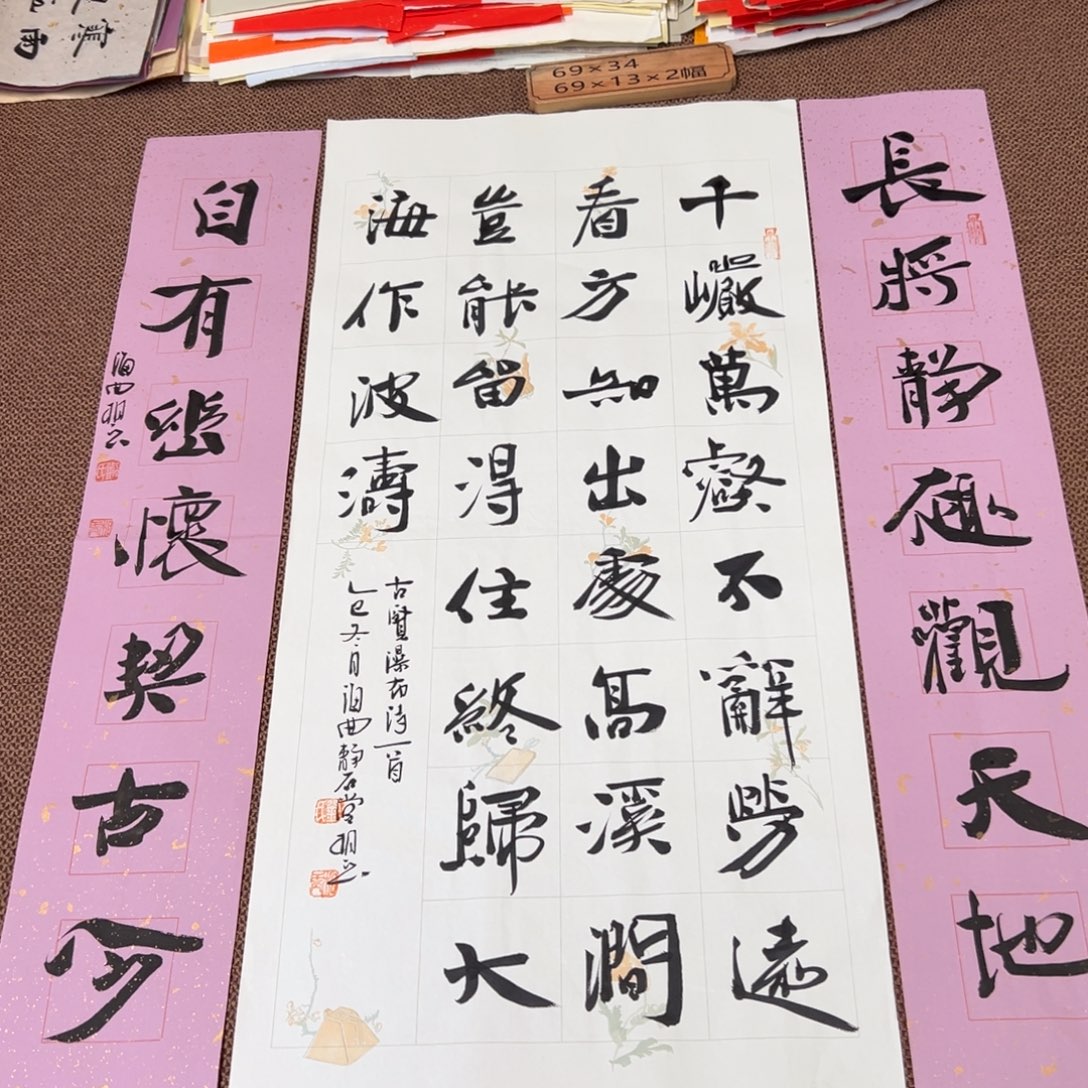 69×34
69×13×2幅
長將靜趣觀天地
千巖萬壑不辭勞遠
看方知出處高溪澗
豈能留得住終歸大
海作波濤
古賢瀑布詩一首
乙巳冬月 靜石堂
自有幽懷契古今